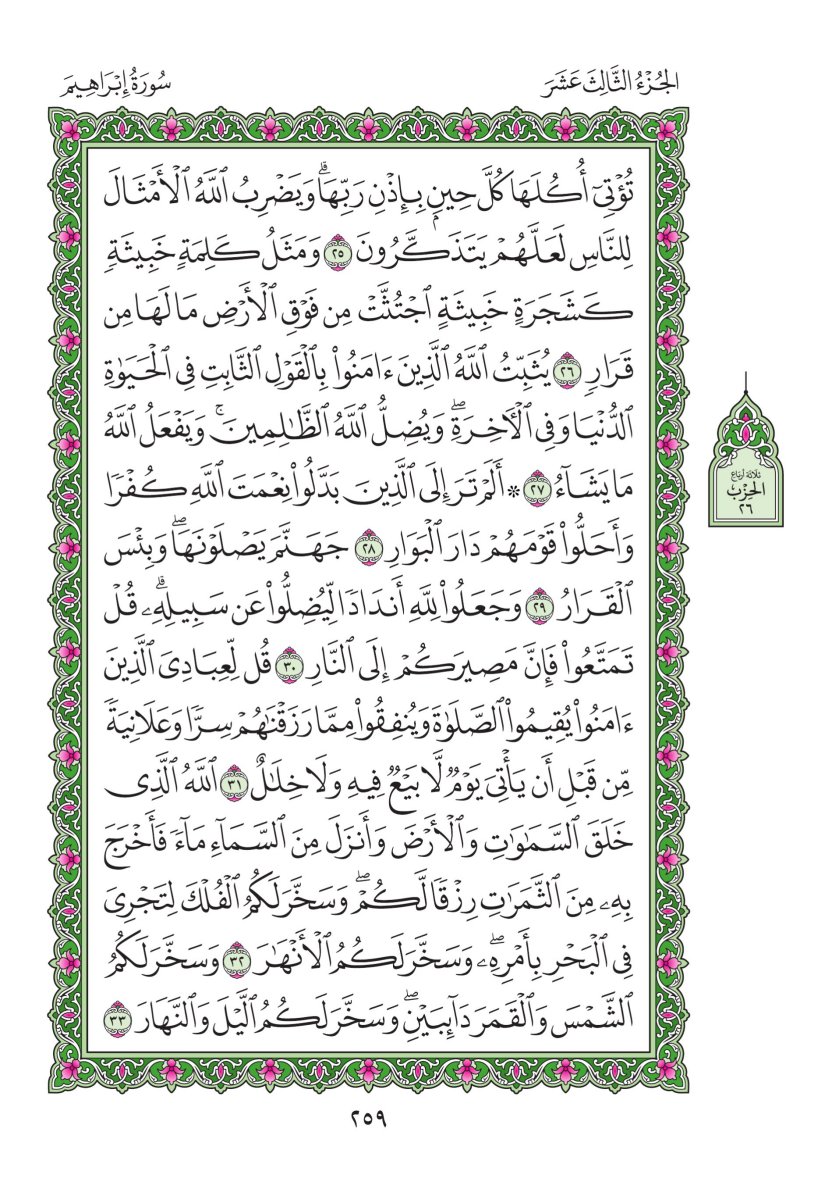 الجُزْءُ الثَّالِثَ عَشَرَ
سُورَةُ إِبْرَاهِيمَ
تُؤْتِىٓ أُكُلَهَا كُلَّ حِينِۭ بِإِذْنِ رَبِّهَاۗ وَيَضْرِبُ ٱللَّهُ ٱلْأَمْثَالَ
لِلنَّاسِ لَعَلَّهُمْ يَتَذَكَّرُونَ ٢٥ وَمَثَلُ كَلِمَةٍ خَبِيثَةٖ
كَشَجَرَةٍ خَبِيثَةٍ ٱجْتُثَّتْ مِن فَوْقِ ٱلْأَرْضِ مَا لَهَا مِن
قَرَارٖ ٢٦ يُثَبِّتُ ٱللَّهُ ٱلَّذِينَ ءَامَنُوا۟ بِٱلْقَوْلِ ٱلثَّابِتِ فِى ٱلْحَيَوٰةِ
ٱلدُّنْيَا وَفِى ٱلْأٓخِرَةِۖ وَيُضِلُّ ٱللَّهُ ٱلظَّٰلِمِينَۚ وَيَفْعَلُ ٱللَّهُ
مَا يَشَآءُ ٢٧ * أَلَمْ تَرَ إِلَى ٱلَّذِينَ بَدَّلُوا۟ نِعْمَتَ ٱللَّهِ كُفْرٗا
وَأَحَلُّوا۟ قَوْمَهُمْ دَارَ ٱلْبَوَارِ ٢٨ جَهَنَّمَ يَصْلَوْنَهَاۖ وَبِئْسَ
ٱلْقَرَارُ ٢٩ وَجَعَلُوا۟ لِلَّهِ أَندَادٗا لِّيُضِلُّوا۟ عَن سَبِيلِهِۦۗ قُلْ
تَمَتَّعُوا۟ فَإِنَّ مَصِيرَكُمْ إِلَى ٱلنَّارِ ٣٠ قُل لِّعِبَادِىَ ٱلَّذِينَ
ءَامَنُوا۟ يُقِيمُوا۟ ٱلصَّلَوٰةَ وَيُنفِقُوا۟ مِمَّا رَزَقْنَٰهُمْ سِرّٗا وَعَلَانِيَةٗ
مِّن قَبْلِ أَن يَأْتِىَ يَوْمٞ لَّا بَيْعٞ فِيهِ وَلَا خِلَٰلٌ ٣١ ٱللَّهُ ٱلَّذِى
خَلَقَ ٱلسَّمَٰوَٰتِ وَٱلْأَرْضَ وَأَنزَلَ مِنَ ٱلسَّمَآءِ مَآءٗ فَأَخْرَجَ
بِهِۦ مِنَ ٱلثَّمَرَٰتِ رِزْقٗا لَّكُمْۖ وَسَخَّرَ لَكُمُ ٱلْفُلْكَ لِتَجْرِىَ
فِى ٱلْبَحْرِ بِأَمْرِهِۦۖ وَسَخَّرَ لَكُمُ ٱلْأَنْهَٰرَ ٣٢ وَسَخَّرَ لَكُمُ
ٱلشَّمْسَ وَٱلْقَمَرَ دَآئِبَيْنِۖ وَسَخَّرَ لَكُمُ ٱلَّيْلَ وَٱلنَّهَارَ ٣٣
ثلاثة أرباع
الحِزْب
٢٦
٢٥٩